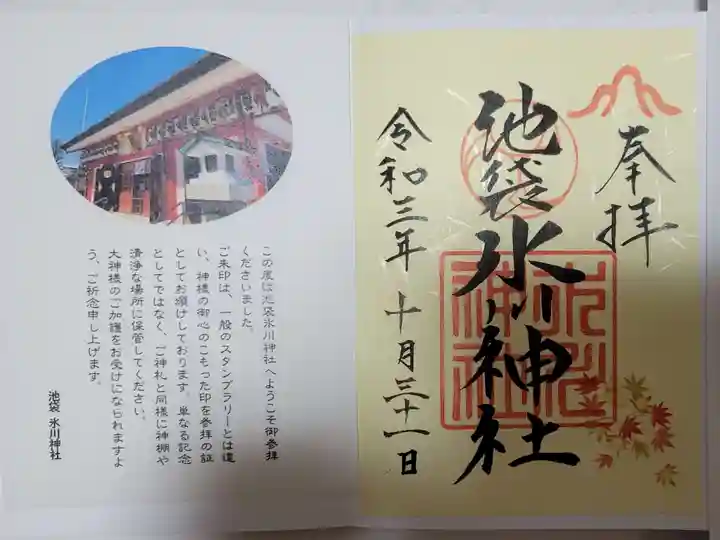 奉拝
池袋氷川神社
氷川
神社
令和三年 十月三十一日
この度は池袋氷川神社へようこそ御参拝
くださいました。
ご朱印は、一般のスタンプラリーとは違
い、神様の御心のこもった印を参拝の証
としてお頒けしております。単なる記念
としてではなく、ご神札と同様に神棚や
清浄な場所に保管してください。
大神様のご加護をお受けになられますよ
う、ご祈念申し上げます。
池袋 氷川神社